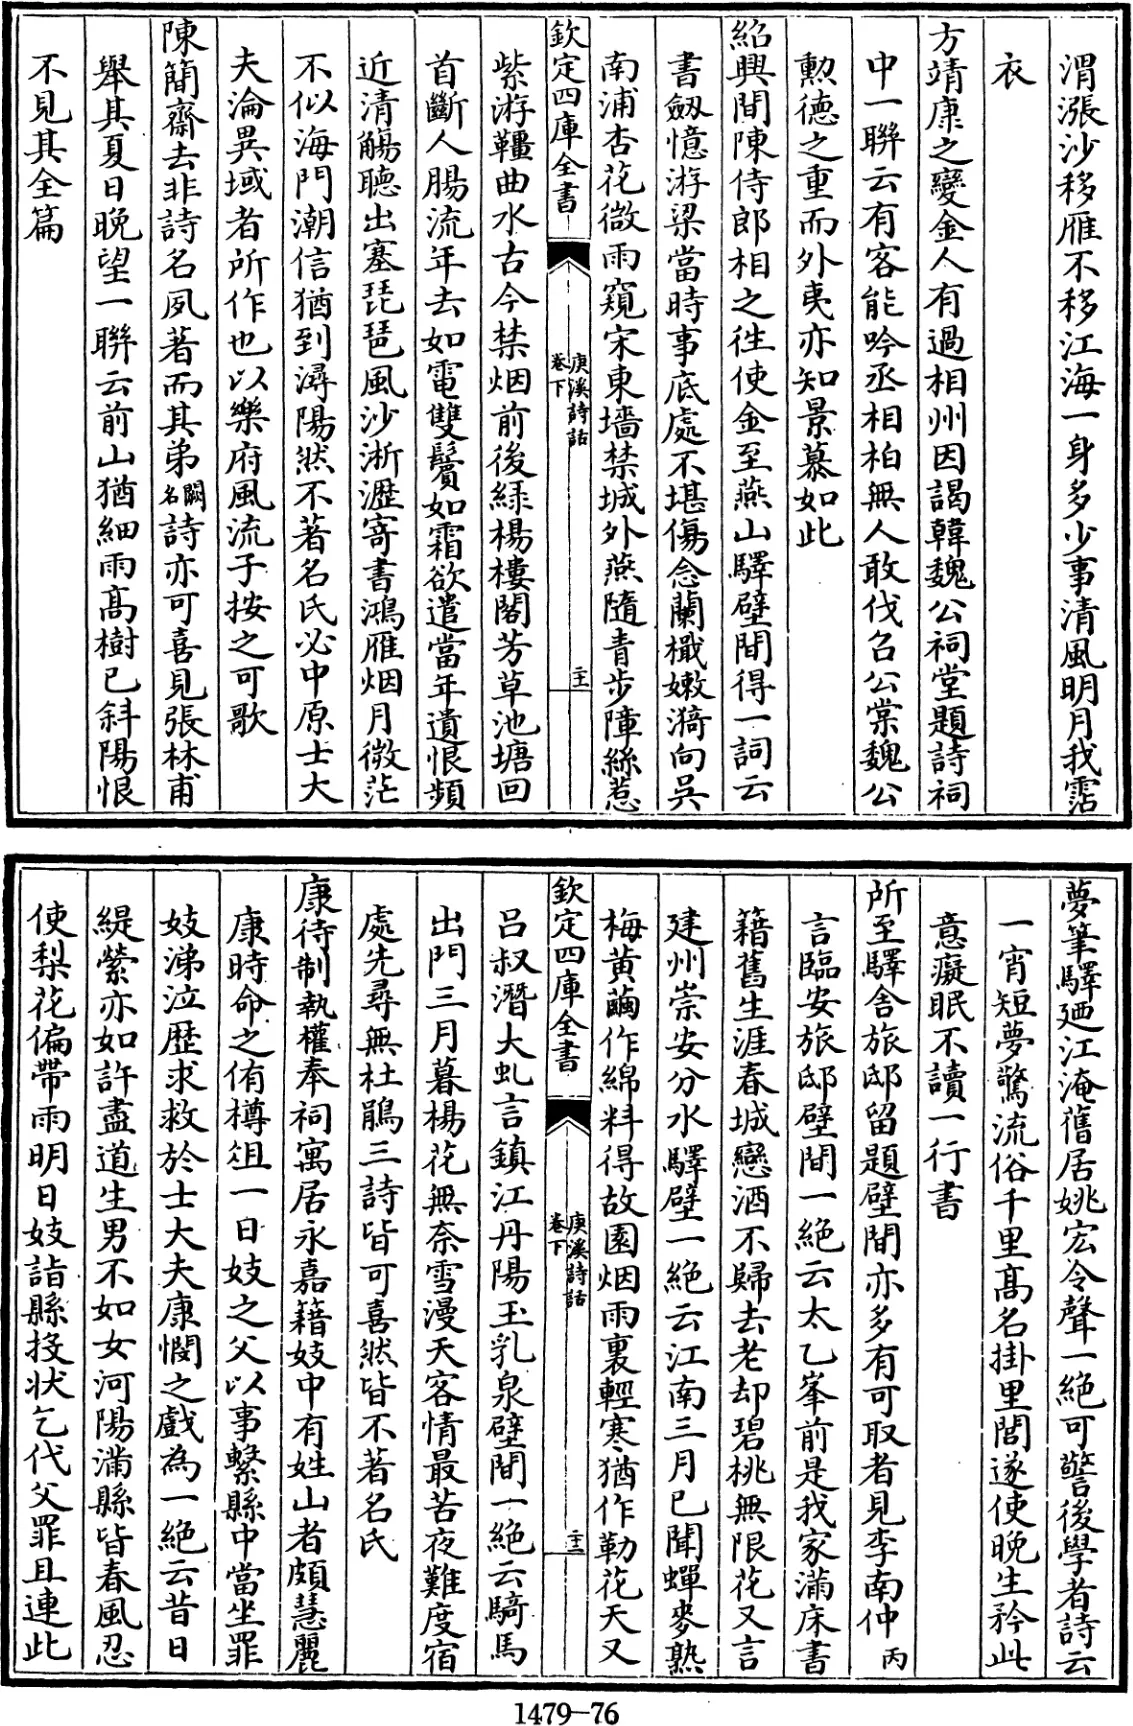 渭漲沙移雁不移江海一身多少事清風明月我霑
衣
方靖康之變金人有過相州因謁韓魏公祠堂題詩祠
中一聯云有客能吟丞相柏無人敢伐召公棠魏公
勲德之重而外夷亦知景慕如此
紹興間陳侍郎相之往使金至燕山驛壁間得一詞云
書劔憶游梁當時事底處不堪傷念蘭檝嫩漪向吳
南浦杏花微雨窺宋東墻禁城外燕隨青步障絲惹
欽定四庫全書
庚溪詩話
卷下
二十一
紫游韁曲水古今禁烟前後綠楊樓閣芳草池塘回
首斷人腸流年去如電雙鬢如霜欲遣當年遺恨頻
近清觴聽出塞琵琶風沙淅瀝寄書鴻雁烟月微茫
不似海門潮信猶到潯陽然不著名氏必中原士大
夫淪異域者所作也以樂府風流子按之可歌
陳簡齋去非詩名夙著而其弟名闕詩亦可喜見張林甫
舉其夏日晚望一聯云前山猶細雨高樹已斜陽恨
不見其全篇
夢筆驛廼江淹舊居姚宏令聲一絶可警後學者詩云
一宵短夢驚流俗千里高名掛里閭遂使晚生矜此
意癡眠不讀一行書
所至驛舍旅邸留題壁間亦多有可取者見李南仲丙
言臨安旅邸壁間一絶云太乙峯前是我家滿床書
籍舊生涯春城戀酒不歸去老却碧桃無限花又言
建州崇安分水驛壁一絶云江南三月已聞蟬麥熟
梅黄繭作綿料得故園烟雨裏輕寒猶作勒花天又
欽定四庫全書
庚溪詩話
卷下
二十二
呂叔潛大虬言鎮江丹陽玉乳泉壁間一絶云騎馬
出門三月暮楊花無奈雪漫天客情最苦夜難度宿
處先尋無杜鵑三詩皆可喜然皆不著名氏
康待制執權奉祠寓居永嘉籍妓中有姓山者頗慧麗
康時命之侑樽俎一日妓之父以事繫縣中當坐罪
妓涕泣歴求救於士大夫康憫之戲為一絶云昔日
緹縈亦如許盡道生男不如女河陽滿縣皆春風忍
使梨花偏帶雨明日妓詣縣投狀乞代父罪且連此
1479—76